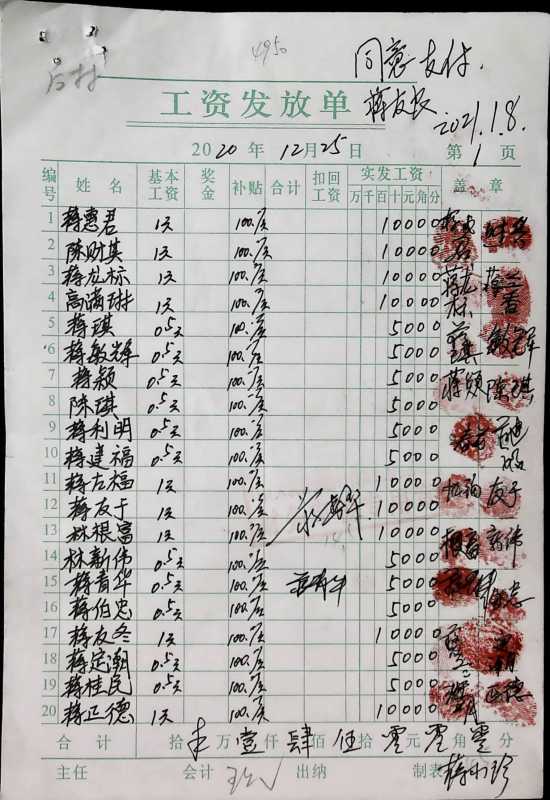 4950
同意支付.
后村
蒋友长
2021.1.8.
工资发放单
2020年 12月25日 第1页
编号 姓名 基本工资 奖金 补贴 合计 扣回工资 实发工资 盖章
万千百十元角分
1 蒋惠君 1天 100./天 10000
2 陈财其 1天 100./天 10000
3 蒋龙标 1天 100./天 10000 蒋龙标
4 高满琳 1天 100./天 10000
5 蒋琪 0.5天 100./天 5000 蒋琪
6 蒋敏辉 0.5天 100./天 5000 敏辉
7 蒋颖 0.5天 100./天 5000 蒋颖
8 陈琪 0.5天 100./天 5000 陈琪
9 蒋利明 0.5天 100./天 5000
10 蒋建福 0.5天 100./天 5000
11 蒋左福 1天 100./天 10000
12 蒋友于 1天 100./天 10000 友于
13 林根富 1天 100./天 10000 根富
14 林新伟 0.5天 100./天 5000 新伟
15 蒋青华 0.5天 100./天 5000
16 蒋伯忠 0.5天 100./天 5000
17 蒋友冬 1天 100./天 10000
18 蒋定潮 0.5天 100./天 5000
19 蒋桂民 0.5天 100./天 5000
20 蒋正德 1天 100./天 10000 正德
合计 拾 万壹仟肆佰伍拾零元零角零分
主任 会计 出纳 制表